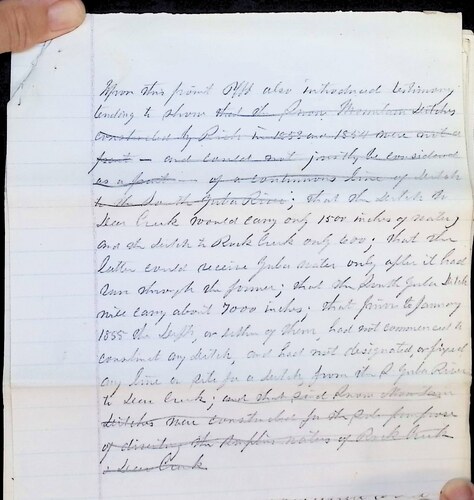 Upon this point Plff also introduced testimony
tending to show that the Snow Mountain Ditches
constructed by Rich in 1853 and 1854 were not a
part — and could not justly be considered
as a part — of a continuous line of ditch
to the South Yuba River; that the ditch to
Deer Creek would carry only 1500 inches of water,
and the ditch to Rock Creek only 600; that the
latter could receive Yuba water only after it had
run through the former; that the South Yuba Ditch
will carry about 7000 inches; that prior to January
1855 the Defts, or either of them, had not commenced to
construct any ditch, and had not designated, or fixed
any line or site for a ditch, from the S. Yuba River
to Deer Creek; and that said Snow Mountain
Ditches were constructed for the sole purpose
of diverting the waters of Rock Creek
& Deer Creek